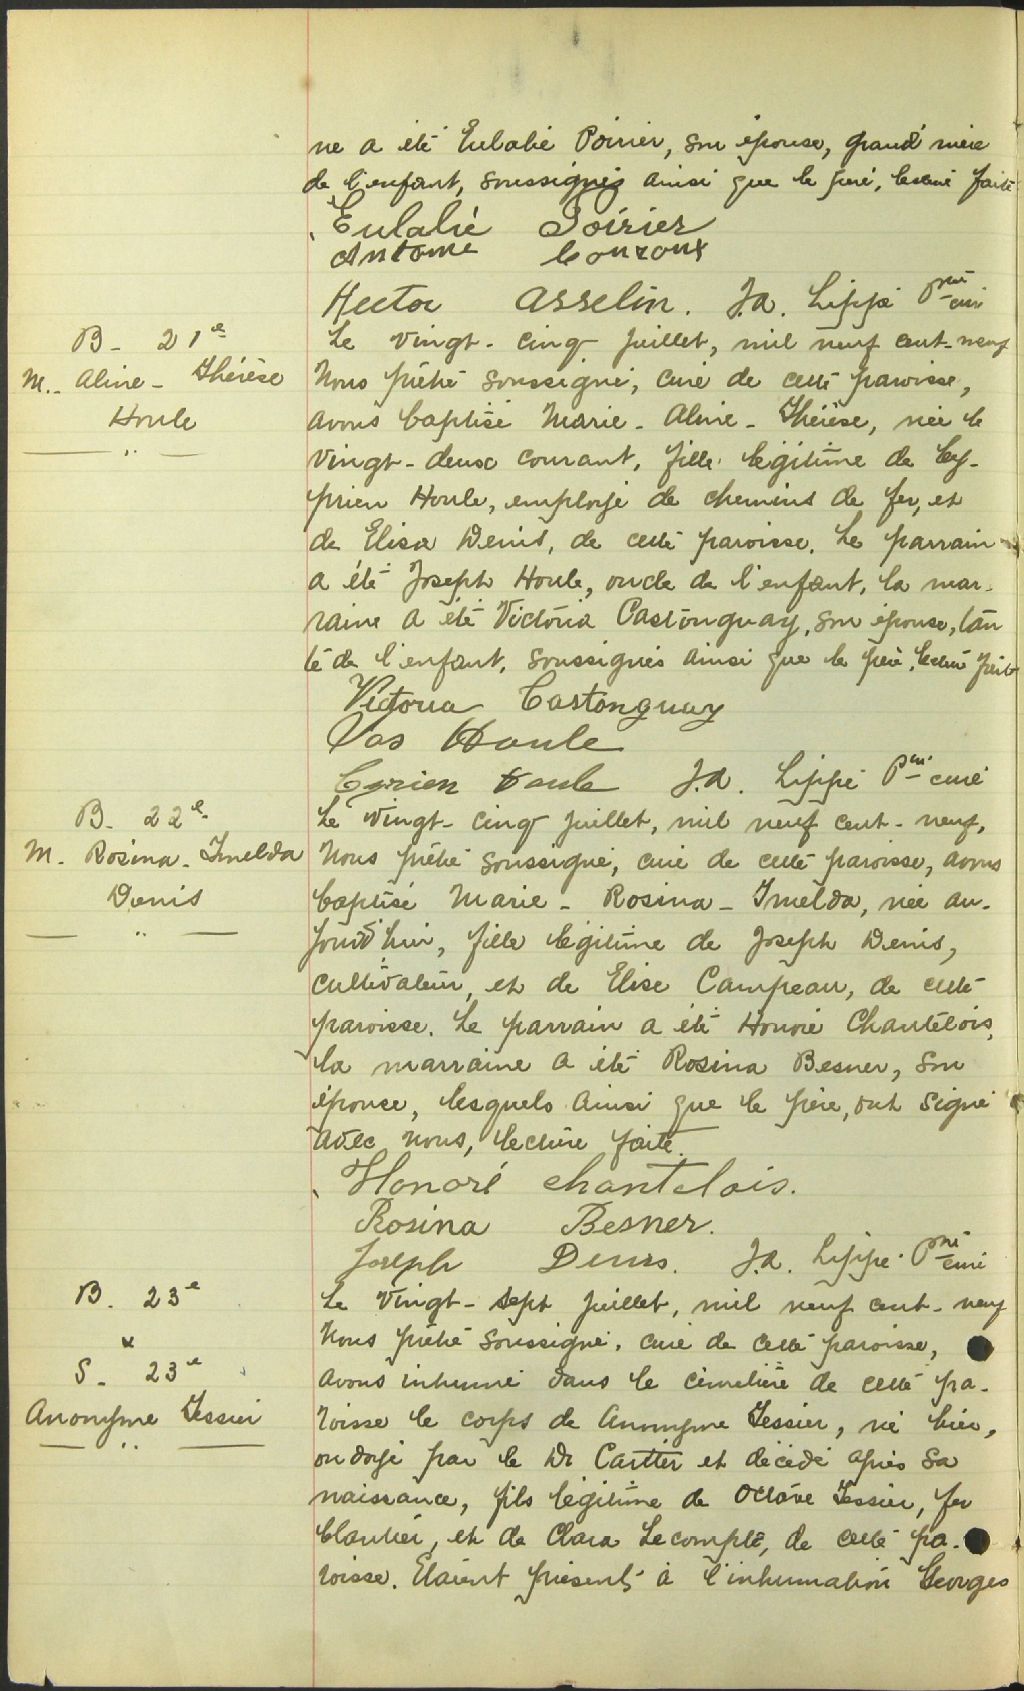 ne a été Eulalie Poirier, son épouse, grand' mère
de l'enfant, soussignés ainsi que le père, lecture faite
Eulalie Poirier
Antoine Couroux
Hector Asselin. J.A. Lippé Ptre curé
B- 21e
M.- Aline- Thérèse
Houle
Le vingt-cinq juillet, mil neuf cent-neuf
Nous prêtre soussigné, curé de cette paroisse,
avons baptisé Marie-Aline-Thérèse, née le
vingt-deux courant, fille légitime de Cy-
prien Houle, employé de chemins de fer, et
de Elisa Denis, de cette paroisse. Le parrain
a été Joseph Houle, oncle de l'enfant, la mar-
raine a été Victoria Castonguay, son épouse, tan
te de l'enfant, soussignés ainsi que le père, lecture faite
Victoria Castonguay
Jos Houle
Cyprien Houle J.A. Lippé Ptre curé
B- 22e
M- Rosina- Imelda
Denis
Le vingt-cinq juillet, mil neuf cent-neuf,
Nous prêtre soussigné, curé de cette paroisse, avons
baptisé Marie-Rosina-Imelda, née au-
jourd'hui, fille légitime de Joseph Denis,
cultivateur, et de Elise Campeau, de cette
paroisse. Le parrain a été Honoré Chantelois,
la marraine a été Rosina Besner, son
épouse, lesquels ainsi que le père, ont signé
avec nous, lecture faite.
Honoré Chantelois.
Rosina Besner.
Joseph Denis. J.A. Lippé Ptre curé
B. 23e
x
S- 23e
Anonyme Tessier
Le vingt-sept juillet, mil neuf cent-neuf
Nous prêtre soussigné, curé de cette paroisse,
avons inhumé dans le cimetière de cette pa-
roisse le corps de Anonyme Tessier, né hier,
ondoyé par le Dr Cartier et décédé après sa
naissance, fils légitime de Octave Tessier, fer
blantier, et de Clara Lecompte, de cette pa-
roisse. Etaient présents à l'inhumation Georges